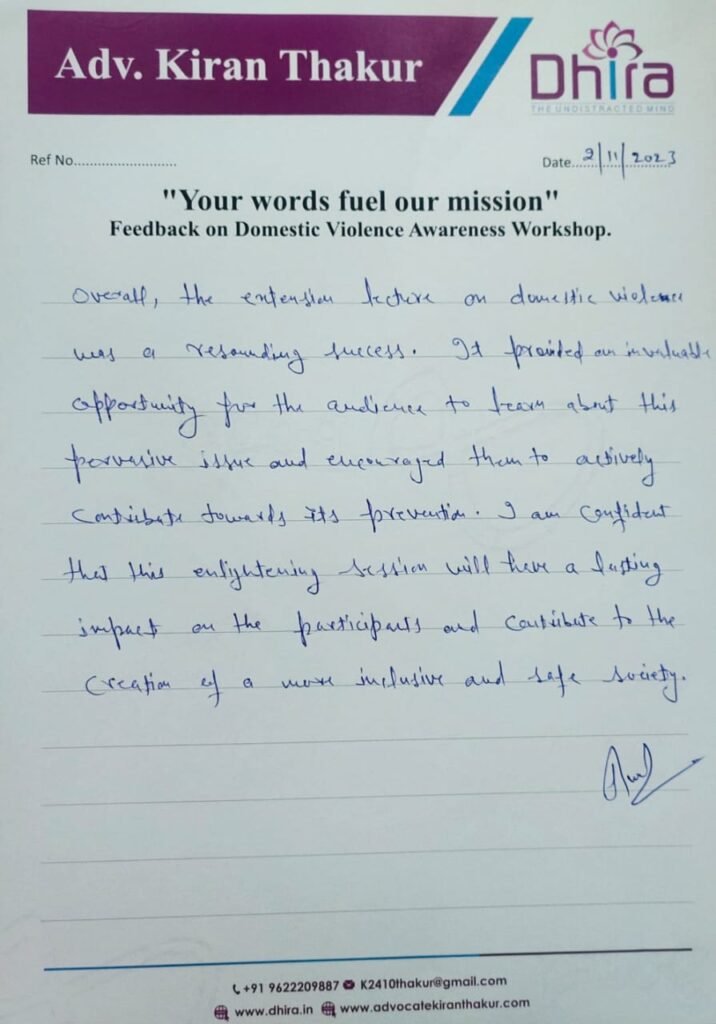 Adv. Kiran Thakur
Dhira
THE UNDISTRACTED MIND
Ref No..........................
Date...2/11/2023
"Your words fuel our mission"
Feedback on Domestic Violence Awareness Workshop.
Overall, the extension lecture on domestic violence
was a resounding success. It provided an invaluable
opportunity for the audience to learn about this
pervasive issue and encouraged them to actively
contribute towards its prevention. I am confident
that this enlightening session will have a lasting
impact on the participants and contribute to the
creation of a more inclusive and safe society.
+91 9622209887 K2410thakur@gmail.com
www.dhira.in www.advocatekiranthakur.com